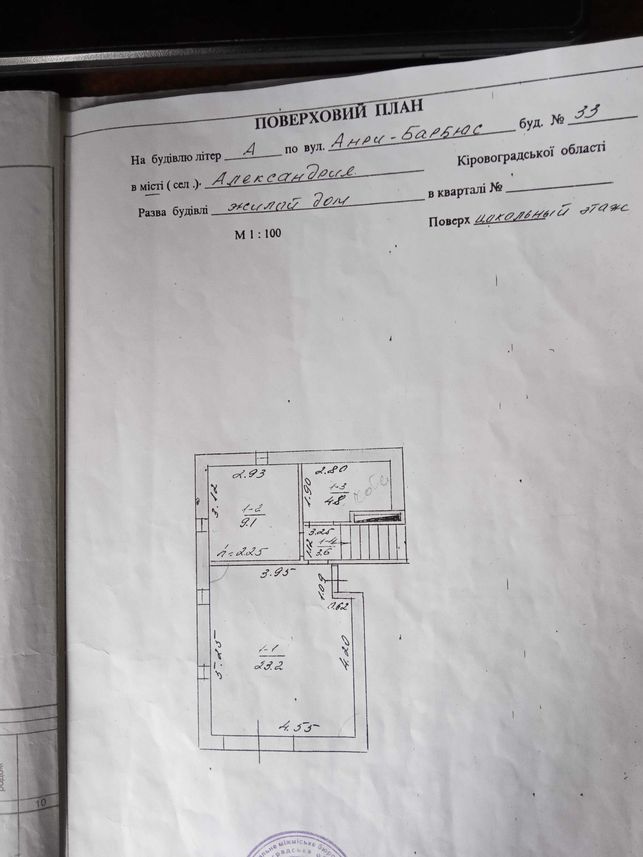 ПОВЕРХОВИЙ ПЛАН
На будівлю літер А по вул. Анри-Барбюс буд. № 33
в місті ( сел .)· Александрия Кіровоградської області
Разва будівлі жилай дом в кварталі №
М 1 : 100 Поверх цокольный этаж
2.93
2.80
3.12
1.90
1-2
9.1
1-3
4.8
h=2.25
3.25
1.12
1-4
3.6
3.95
1.09
0.62
5.25
1-1
23.2
4.20
4.55
10